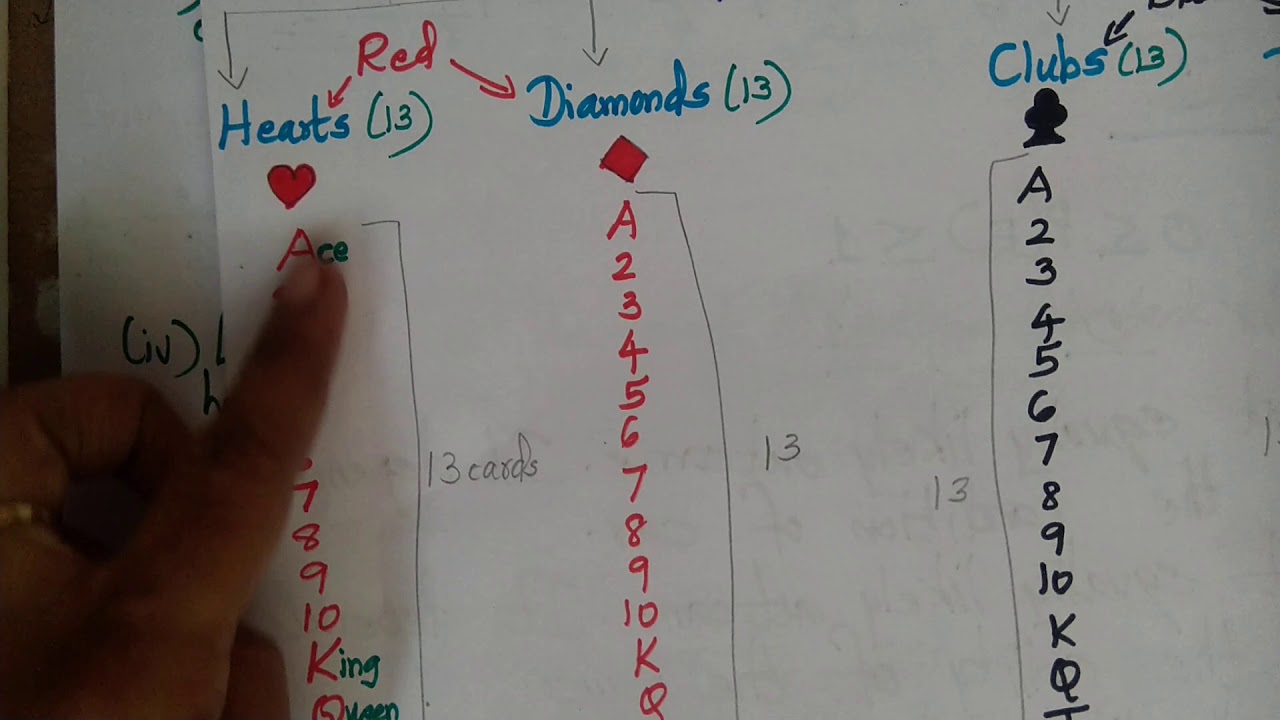 Red
Hearts (13)
Diamonds (13)
Clubs (13)
Ace
7
8
9
10
King
Queen
13 cards
A
2
3
4
5
6
7
8
9
10
K
Q
13
13
A
2
3
4
5
6
7
8
9
10
K
Q
(iv)